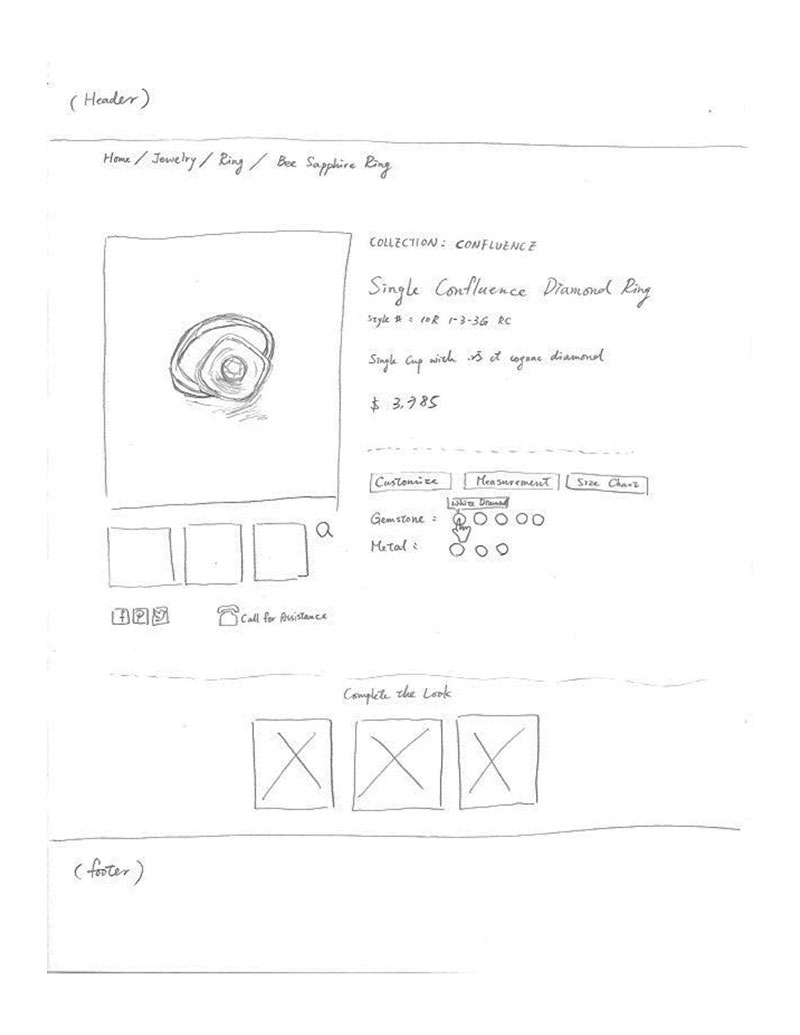 (Header)
Home / Jewelry / Ring / Bee Sapphire Ring
COLLECTION: CONFLUENCE
Single Confluence Diamond Ring
Style # : 10R 1-3-3G RC
Single Cup with .5 ct cognac diamond
$ 3,985
Customize
Measurement
Size Chart
White Diamond
Gemstone :
Metal :
f
Call for Assistance
Complete the Look
(footer)